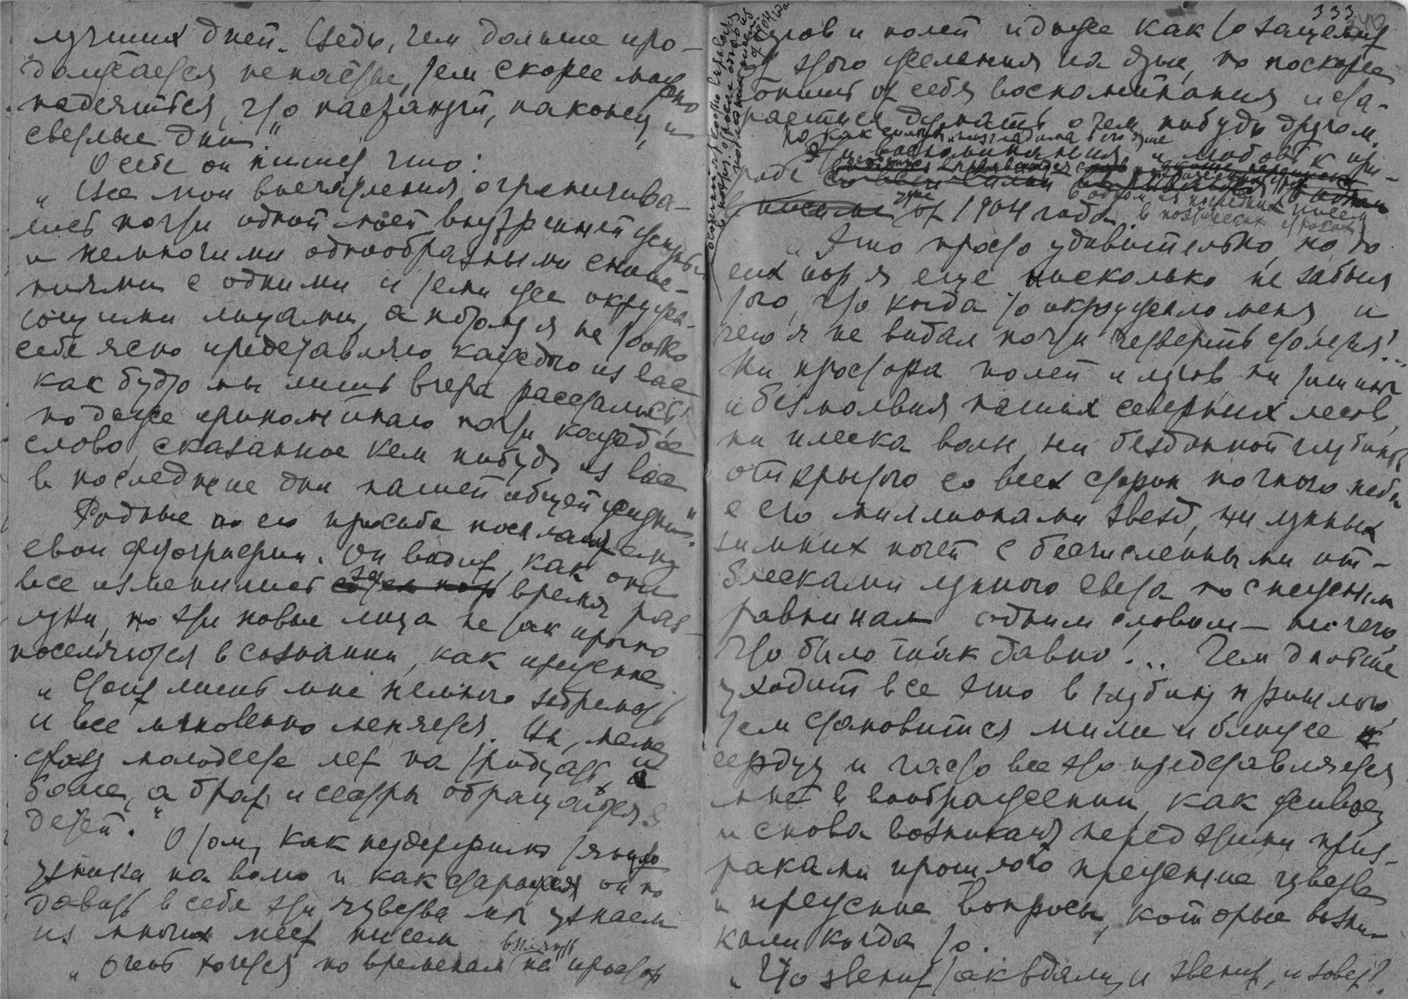 лучших дней. Ведь, чем дольше про-
должается ненастье, тем скорее можно
надеяться, что настанут, наконец, и
светлые дни."
О себе он пишет что:
„Все мои впечатления ограничива-
лись почти одной моей внутренней жизнью
и немногими однообразными сноше-
ниями с одними и теми же окружа-
ющими лицами, а потому я не только
себе ясно представляю каждого из вас
как будто мы лишь вчера расстались
но даже припоминаю почти каждое
слово, сказанное кем нибудь из вас
в последние дни нашей общей жизни".
Родные по его просьбе посылают ему
свои фотографии. Он видит, как они
все изменились за время раз-
луки, но эти новые лица не так прочно
поселяются в сознании, как прежние.
„Стоит лишь мне немного
и все мгновенно меняется. Вы, мама
сразу молодеете лет на тридцать, и
более, а брат и сестры обращаются в
детей." О том, как неудержимо тянуло
узника на волю и как старался он по
давить в себе эти чувства мы узнаем
из многих мест писем
„Очень хочется по временам взглянуть на простор
333
лугов и полей и даже как то защемит
от этого желания на душе, но поскорее
гонишь от себя воспоминания и ста-
раешься думать о чем нибудь другом.
Но как
Эти воспоминания и любовь к при-
роде
в одном из
в письме от 1904 года, в поэтических строках
„Это просто удивительно, но до
сих пор я еще нисколько не забыл
того, что когда то окружало меня и
чего я не видал почти четверть столетия!..
Ни простора полей и лугов ни тишины
и безмолвия наших северных лесов,
ни плеска волн, ни бездонной глубины
открытого со всех сторон ночного неба
с его миллионами звезд, ни лунных
зимних ночей с бесчисленными от-
блесками лунного света по снежным
равнинам одним словом — ничего,
что было так давно!... Чем дальше
уходит все это в глубину прошлого,
тем становится милее и ближе к
сердцу и часто все это представляется
мне в воображении, как живое,
и снова возникают перед этими приз-
раками прошлого прежние чувства
и прежние вопросы, которые возни-
кали когда то.
„Что звенит так вдали, и звенит, и зовет?